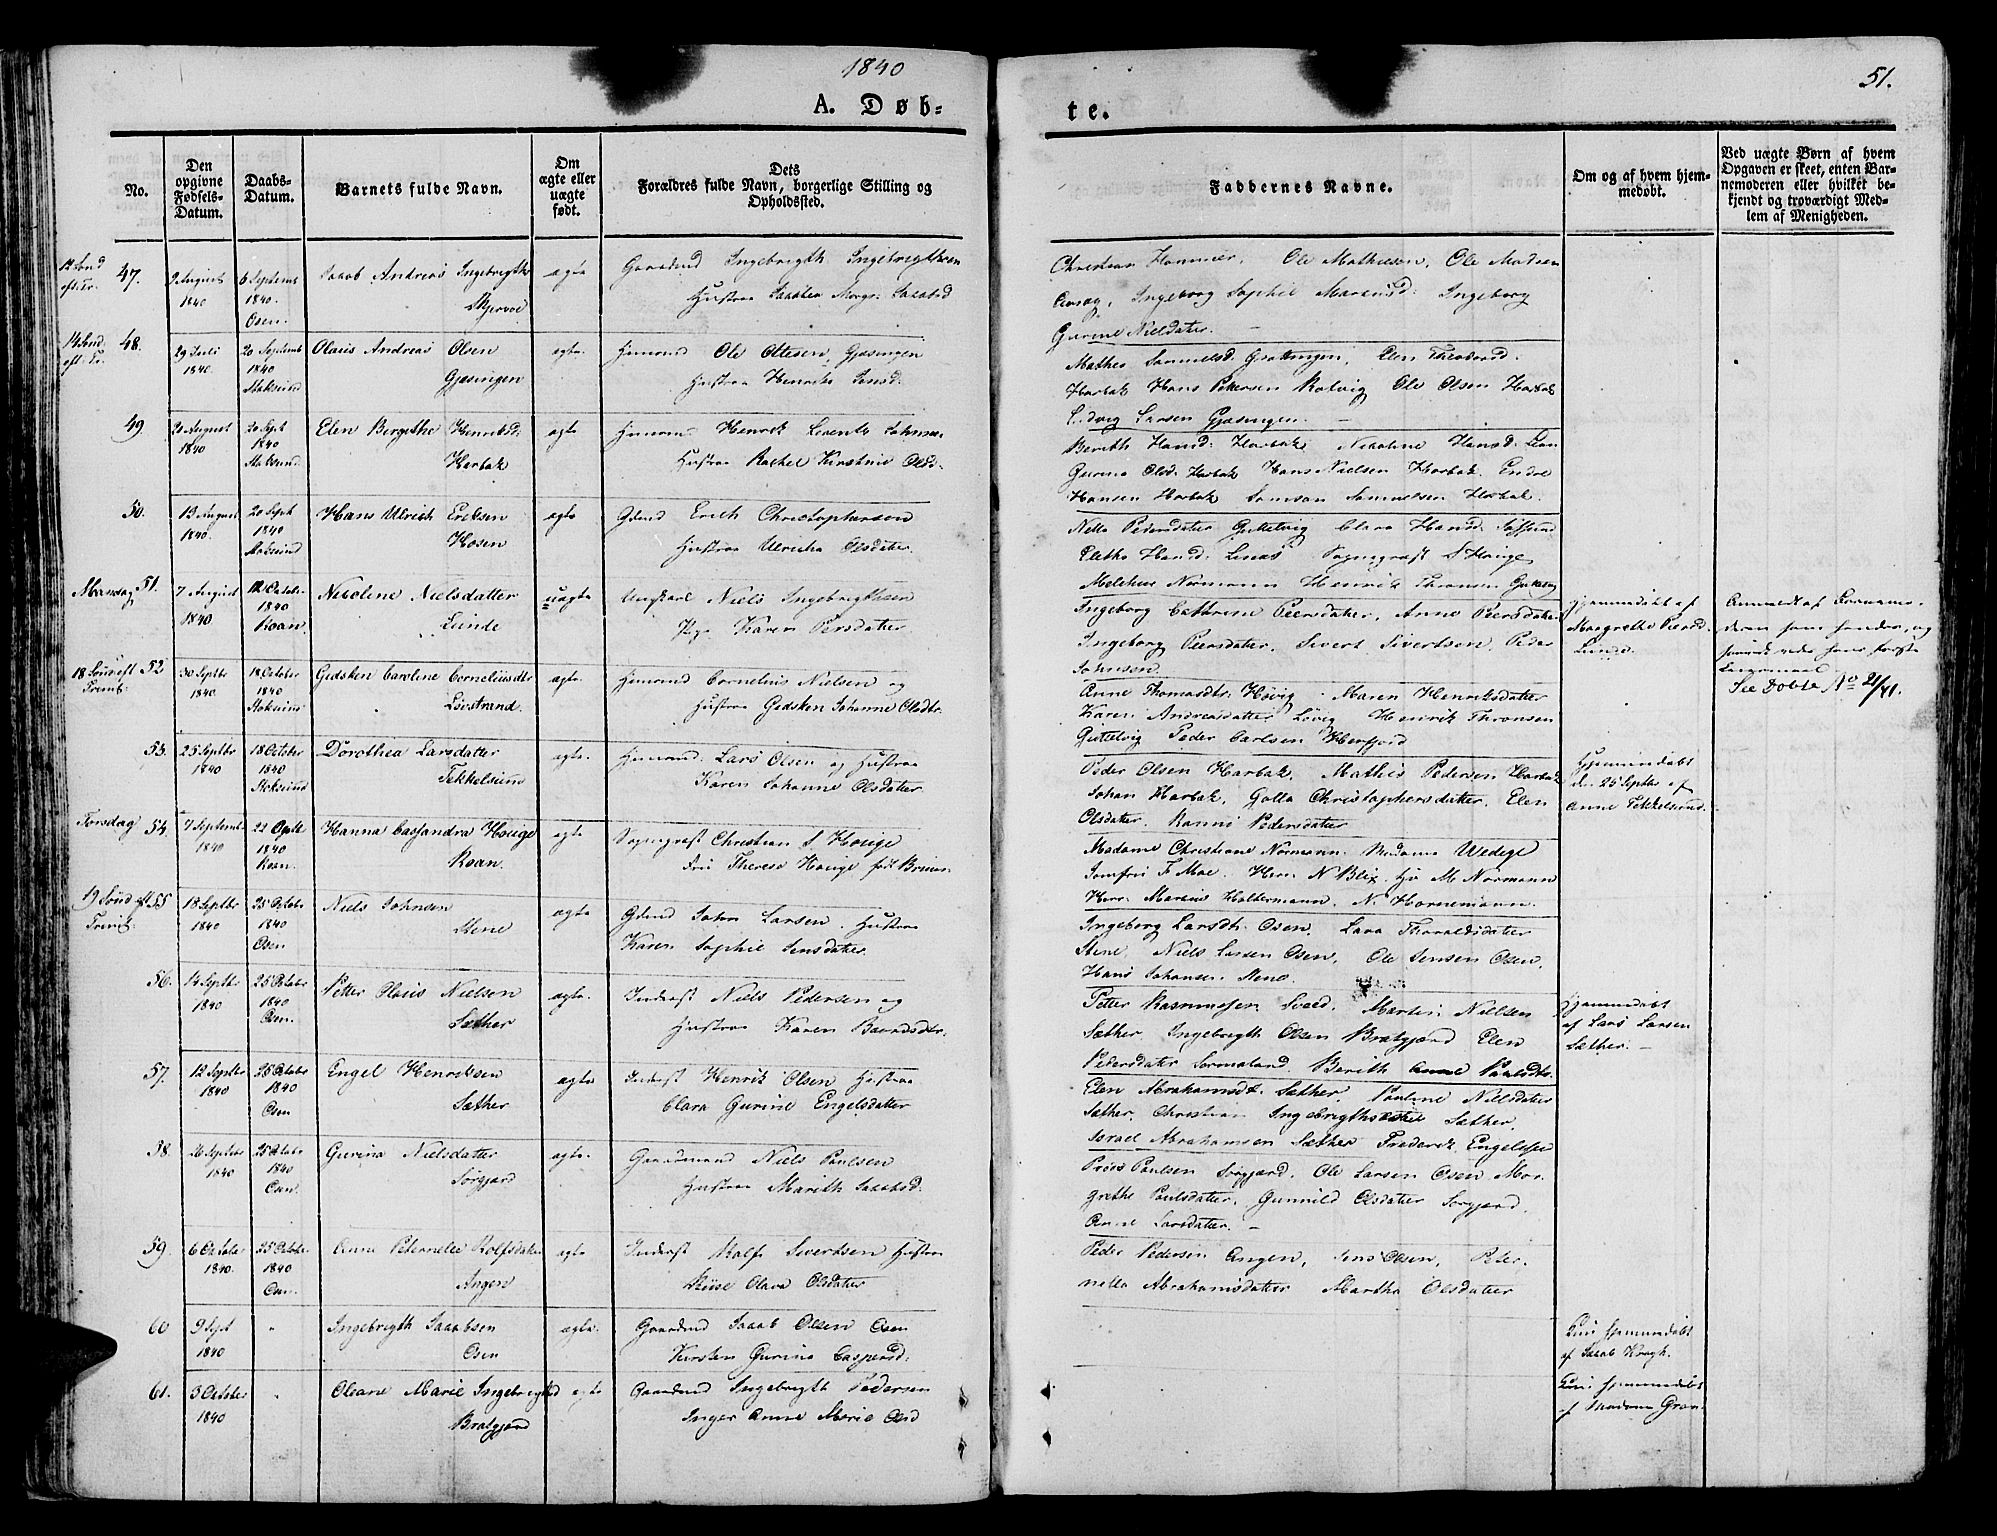 1840
51.
A. Døb=
te.
No.
Den opgivne Fødsels-Datum.
Daabs-Datum.
Barnets fulde Navn.
Om ægte eller uægte født.
Dets Forældres fulde Navn, borgerlige Stilling og Opholdssted.
Faddernes Navne.
Om og af hvem hjemmedøbt.
Ved uægte Børn af hvem Opgaven er skeet, enten Barnemoderen eller hvilket bekjendt og troværdigt Medlem af Menigheden.
12 Sønd
eft. Tr.
47.
9 August
1840
6 Septemb
1840.
Osen.
Jacob Andreas Ingebrigths
Skjervøe
ægte
Gaardmd Ingebrigth Ingebrigthsen
Hustrue Jacobea Jacobsd
Christian Hammer, Ole Mathiesen, Ole Madsen
Ingeborg Sophie Marcusd: Ingeborg
Gurine Nielsdatter. –
14 Sønd.
eft. Tr.
48.
29 Juli
1840.
20 Septemb
1840
Stoksund
Olaus Andreas Olsen
Gjæsingen
ægte.
Huusmd Ole Ottesen, Gjæsingen
Hustrue Henricka Jensd:
Mathea Samuelsd. Elen Theodorsd.
Harbak Hans Petersen Ole Olsen Harbak
Ludvig Larsen Gjæsingen. –
49.
20 August
1840
20 Sept
1840
Stoksund
Elen Bergithe Henriksd:
Harbak
ægte
Henrik Lorentz
Hustrue Rachel Kirstine Olsd.
Bereth Hansd: Harbak Nicoline Hansd:
Gurina Olsd. Harbak Hans Nielsen Harbak. Endre
Hansen Harbak Samson Samuelsen Harbak.
50.
12 August
1840.
20 Sept
1840
Stoksund
Hans Ulrich Eriksen
Hosen
ægte
Gdmd Erich Christophersen
Hustrue Ulricha Olsdatter.
Nella Pedersdatter Clara Hansd:
Hansd: S Hougе
Melchior Normann Henrik Thronsen
Mandag
51.
7 August
1840
12 October
1840
Roan.
Nicoline Nielsdatter
Lunde
uægte
Ungkarl Niels Ingebrigthsen
Pg. Karen Persdatter
Ingeborg Cathrine Peersdatter, Anne Peersdatter
Ingeborg Peersdatter, Sivert Sivertsen, Peder
Johnsen.
Hjemmedøbt af
Margrethe Peersd.
Lunde.
Anmeldt af Barnemo-
deren som hendes, og
hans første
Leiermaal
See Døbte No 21/41.
18 Søn eft
Trinit:
52
30 Septbr
1840.
18 October
1840
Stoksund
Gidsken Caroline Corneliusdtr
Løvstrand.
ægte.
Huusmd Cornelius Nielsen og
Hustrue Gidsken Johanne Olsdtr.
Anne Thomasdtr. Høvig Maren Henriksdatter
Karen Andreasdatter Løvig Henrik Thronsen
Peder Carlsen Herfjord
53.
25 Septbr
1840
18 October
1840
Stoksund
Dorothea Larsdatter
Tekkelsund
ægte.
Huusmd: Lars Olsen og Hustrue
Karen Johanne Olsdatter.
Peder Olsen Harbak. Mathis Pedersen Harbak
Johan Harbak, Golla Christophersdatter. Elen
Olsdatter. Ronni Pedersdatter
Hjemmedøbt
den 25 Septbr af
Anne Tekkelsund.
Torsdag
54.
7 Septemb.
1840
22 Octb
1840
Roan.
Hanna Cassandra Houge
Roan.
ægte
Sogneprest Christian S Houge
Fru Therese Houge født
Madame Christiane Normann. Madame Wedege
Jomfru F Moe. Herr N Blix. M Normann
Herr Marius Holtermann. N. Hornemann.
19 Sønd eft
Trinit:
55
18 Septbr
1840
25 October
1840
Osen
Niels Johnsen
Stene
ægte
Gdmd John Larsen, Hustrue
Karen Sophie Jensdatter.
Ingeborg Larsdtr. Osen, Lava Thoraldsdatter
Stene, Niels Larsen Osen, Ole Jensen Osen,
Hans Johansen Stene
56.
14 Septbr
1840
25 October
1840
Osen.
Petter Olaus Nielsen
Sæther
ægte.
Inderst Niels Pedersen og
Hustrue Karen Baardsdtr.
Petter Rasmussen Martin Nielsen
Sæther Ingebrigth Olsen Bratgjærd Elen
Pedersdatter Sørmeland. Berith Anne Paulsdtr.
Hjemmedøbt
af Lars Larsen
Sæther. –
57.
12 Septbr
1840
25 October
1840
Osen
Engel Henriksen
Sæther
ægte
Inderst Henrik Olsen Hustrue
Clara Gurine Engelsdatter
Elen Abrahamsdtr. Sæther. Pauline Nielsdatter
Sæther, Christian Ingebrigthsen Sæther.
Israel Abrahamsen Sæther Frederik Engelssen
58.
26 Septbr
1840
25 Octobr
1840
Osen.
Gurina Nielsdatter
Sørgjærd
ægte.
Gaardmand Niels Paulsen
Hustrue Marith Jacobsd:
Paulsen Sørgjærd. Ole Larsen Osen Mar-
grethe Paulsdatter, Gunnild Olsdatter Sørgjærd.
Anne Larsdatter. –
59.
6 October
1840.
25 October
1840
Osen.
Anna Peternelle Rolfsdatter
Angen
ægte
Inderst Rolf Sivertsen Hustrue
Olava Olsdatter
Peder Pedersen Angen, Jens Olsen, Peter-
nella Abrahamsdatter Martha Olsdatter
60
9 Sept
1840
"
Ingebrigth Jacobsen
Osen
ægte.
Gaardmd Jacob Olsen Osen
Kirsten Gurina Caspersd:
Kun hjemmedøbt
af Jacob Krogh.
61.
3 October
1840
"
Oleane Marie Ingebrigtsd
Bratgjærd
ægte
Gaardmd Ingebrigth Pedersen
Inger Anne Marie Olsd
Kun hjemmedøbt
af Madame